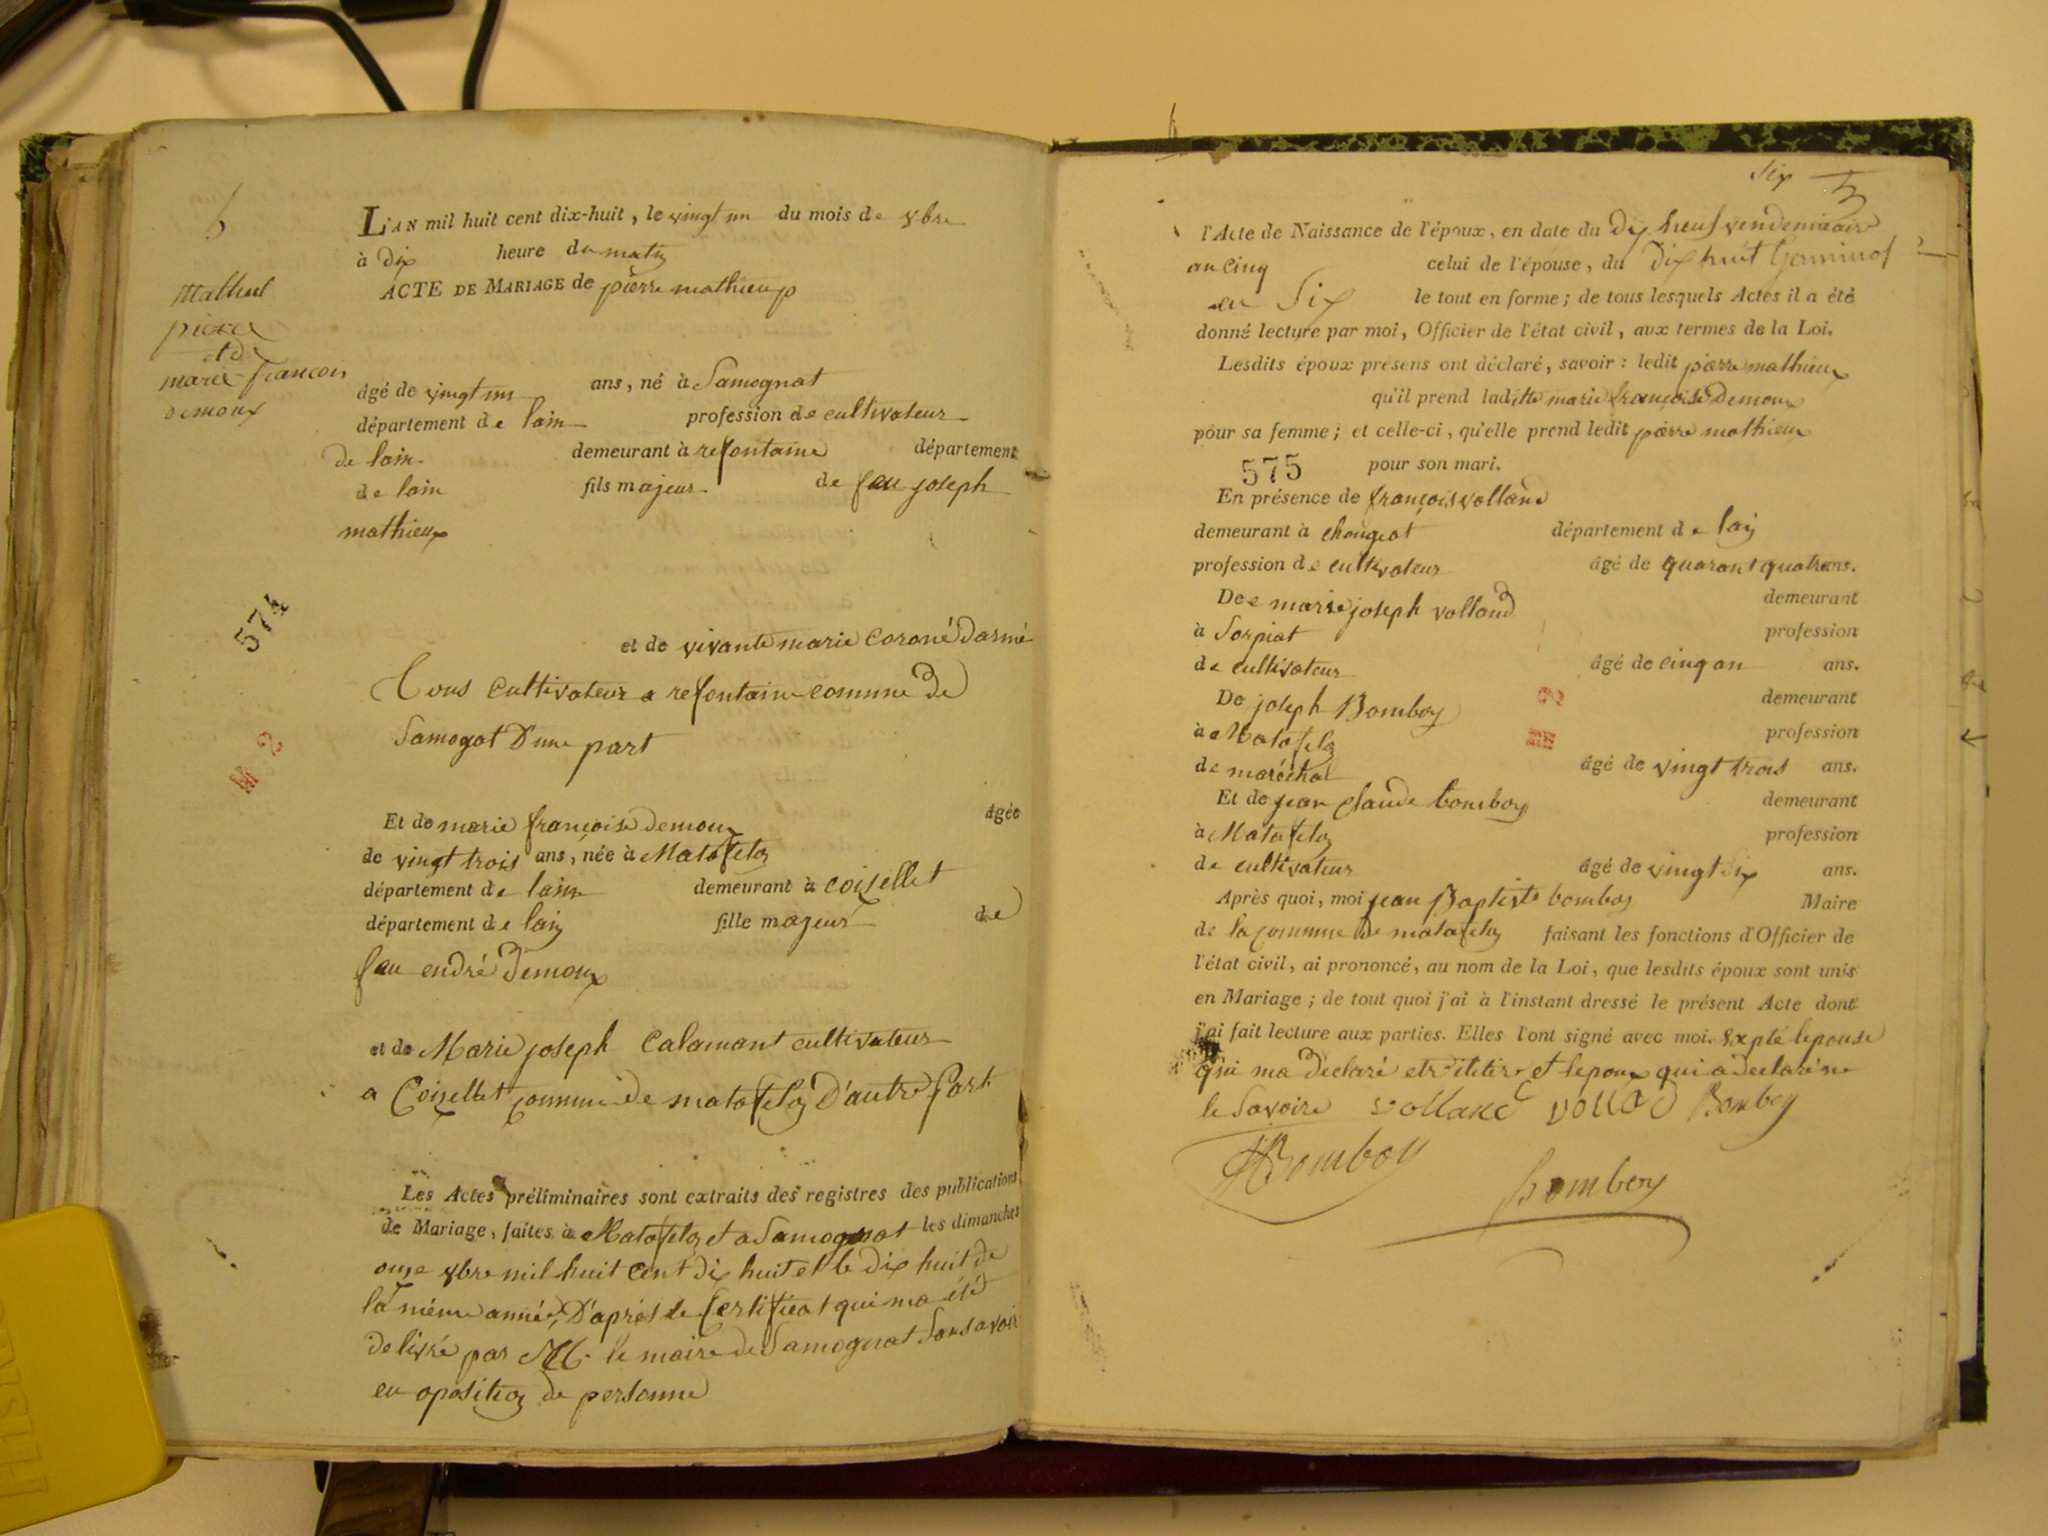 6
L'AN mil huit cent dix-huit, le vingt un du mois de 9bre
à dix heure du matin
ACTE DE MARIAGE de pierre mathieux
Mathieu
pierre
et de
marie françois
demoux
âgé de vingt un ans, né à Samognat
département de lain profession de cultivateur
de lain demeurant à refontaine département
de lain fils majeur de feu joseph
mathieux
574
et de vivante marie Coroné Darmé
Tous cultivateur a refontaine commune de
Samogat D'une part
M 2
Et de marie françoise demoux âgée
de vingt trois ans, née à Matafelon
département de lain demeurant à coisellet
département de lain fille majeur de
feu endré Demoux
et de Marie joseph Calamant cultivateur
a Coisellet commune de matafelon D'autre part
Les Actes préliminaires sont extraits des registres des publications
de Mariage, faites à Matafelon et a Samognat les dimanches
onze 9bre mil huit cent dix huit et le dix huit de
la même année, D'après le Certificat qui ma été
delivré par M. le maire de Samognat Sansavoir
eu oposition de personne
Six
l'Acte de Naissance de l'époux, en date du dix neuf vendemiaire
an cinq celui de l'épouse, du dix huit Germinal
an Six le tout en forme; de tous lesquels Actes il a été
donné lecture par moi, Officier de l'état civil, aux termes de la Loi.
Lesdits époux présens ont déclaré, savoir: ledit pierre mathieux
qu'il prend laditte marie françoise Demoux
pour sa femme; et celle-ci, qu'elle prend ledit pierre mathieux
575 pour son mari.
En présence de françois volland
demeurant à chougeat département de lain
profession de cultivateur âgé de quarant quatre ans.
De marie joseph volland demeurant
à Sorpiat profession
de cultivateur âgé de cinq an ans.
De joseph Bomboy demeurant
à Matafelon profession
de maréchal âgé de vingt trois ans.
Et de jean Claude bomboy demeurant
à Matafelon profession
de cultivateur âgé de vingt six ans.
Après quoi, moi jean Baptiste bomboy Maire
de la commune de matafelon faisant les fonctions d'Officier de
l'état civil, ai prononcé, au nom de la Loi, que lesdits époux sont unis
en Mariage; de tout quoi j'ai à l'instant dressé le présent Acte dont
j'ai fait lecture aux parties. Elles l'ont signé avec moi. Expté lepouse
qui ma declaré et lepoux qui a declaré ne
le Savoire volland vollad Bomboy
Bomboy
bomboy